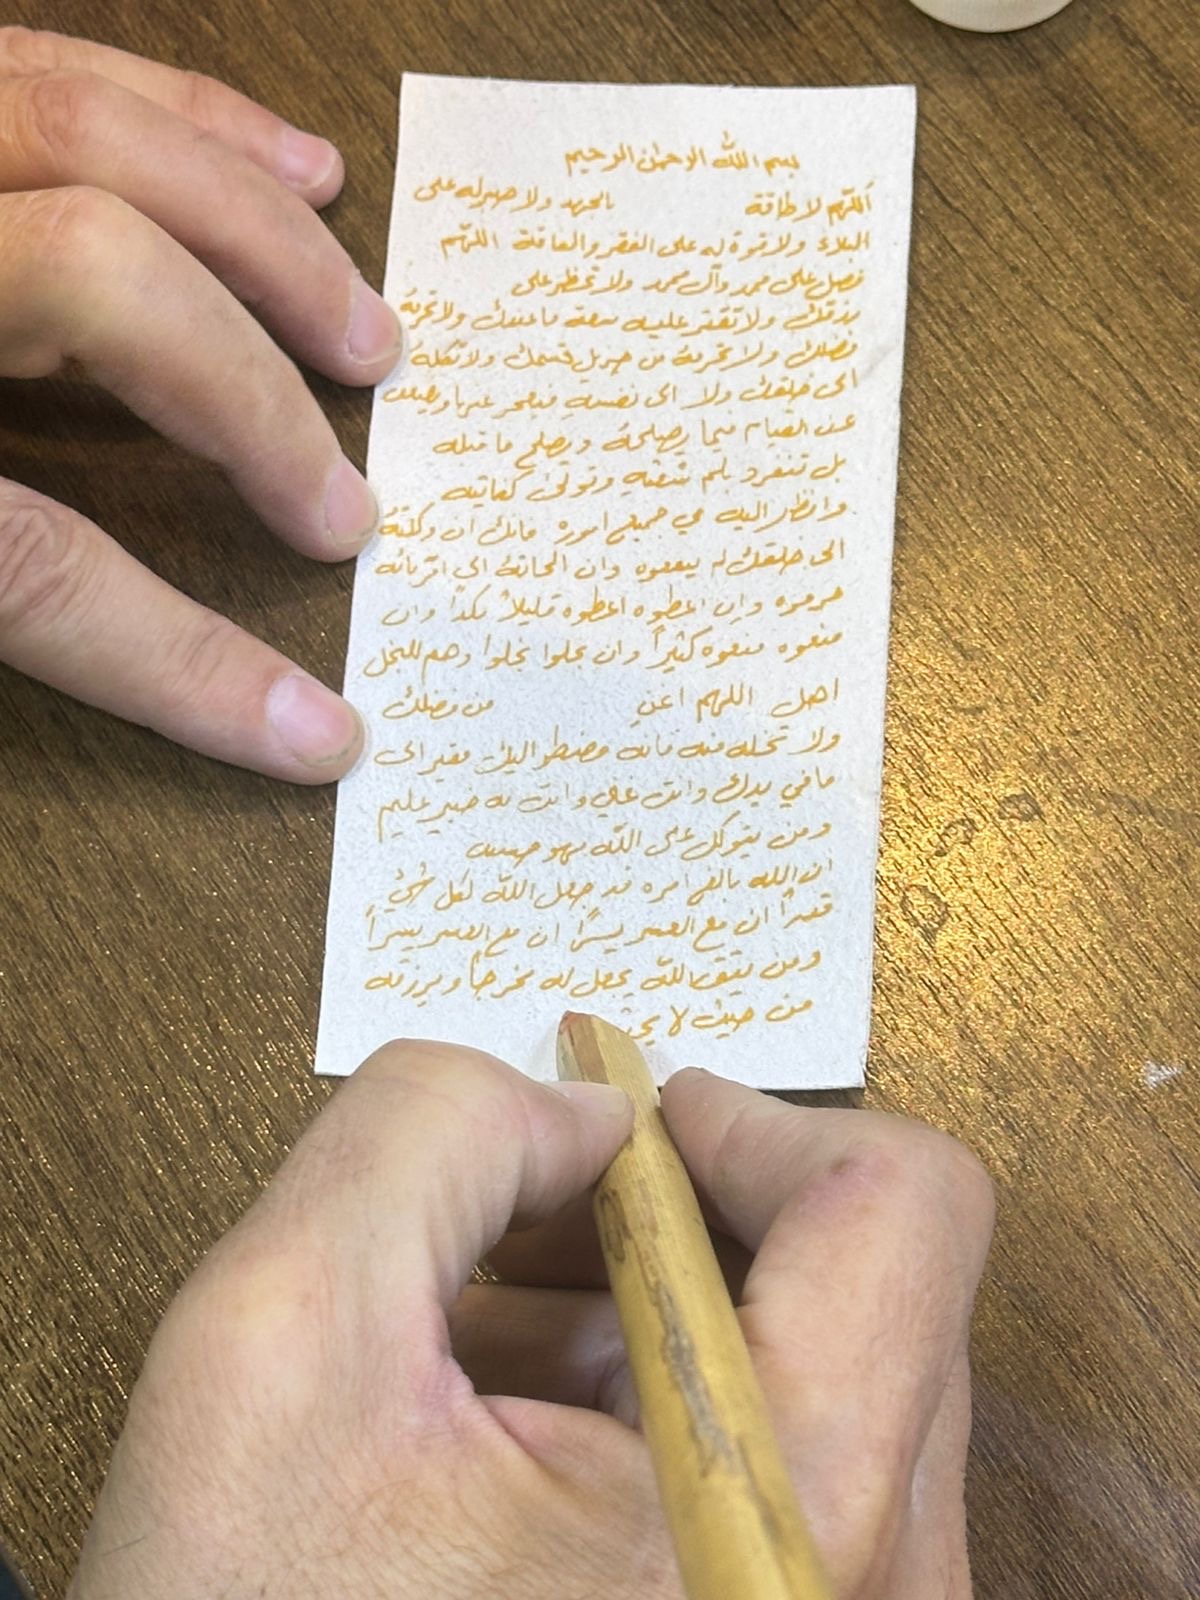 بسم الله الرحمن الرحيم
اللهم لا طاقة بالجهد ولا صبر له على
البلاء ولا قوة له على الفقر والفاقة اللهم
فصل على محمد وآل محمد ولا تحظر على
رزقك ولا تقتر عليه سعة ما عندك ولا تحرمه
فضلك ولا تحرمه من جزيل قسمك ولا تكله
الى خلقك ولا الى نفسه فيعجز عنها و
عن القيام فيما يصلحه ويصلح ما قبله
بل تنفرد بلم شعثه وتولى كفايته
وانظر اليه في جميع اموره فانك ان وكلته
الى خلقك لم ينفعوه وان الجاته الى اقربائه
حرموه وان اعطوه اعطوه قليلاً نكداً وان
منعوه منعوه كثيراً وان بخلوا بخلوا وهم للبخل
اهل اللهم اغن من فضلك
ولا تخله منه فانه مضطر اليك فقير الى
ما في يدك وانت غني وانت به خبير عليم
ومن يتوكل على الله فهو حسبه
ان الله بالغ امره قد جعل الله لكل شيء
قدراً ان مع العسر يسراً ان مع العسر يسراً
ومن يتق الله يجعل له مخرجاً ويرزقه
من حيث لا